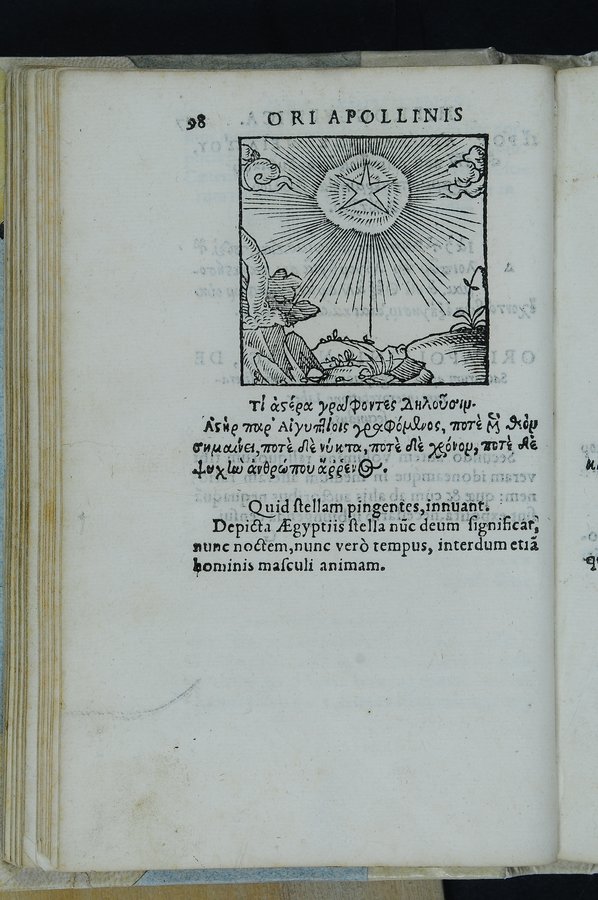 98 ORI APOLLINIS
Τί ἀστέρα γράφοντες δηλοῦσιν.
Ἀστὴρ παρ' Αἰγυπτίοις γραφόμενος, ποτὲ μὲν θεὸν
σημαίνει, ποτὲ δὲ νύκτα, ποτὲ δὲ χρόνον, ποτὲ δὲ
ψυχὴν ἀνθρώπου ἄρρενος.
Quid ſtellam pingentes, innuant.
Depicta Ægyptiis ſtella nūc deum ſignificat,
nunc noctem, nunc verò tempus, interdum etiā
hominis maſculi animam.